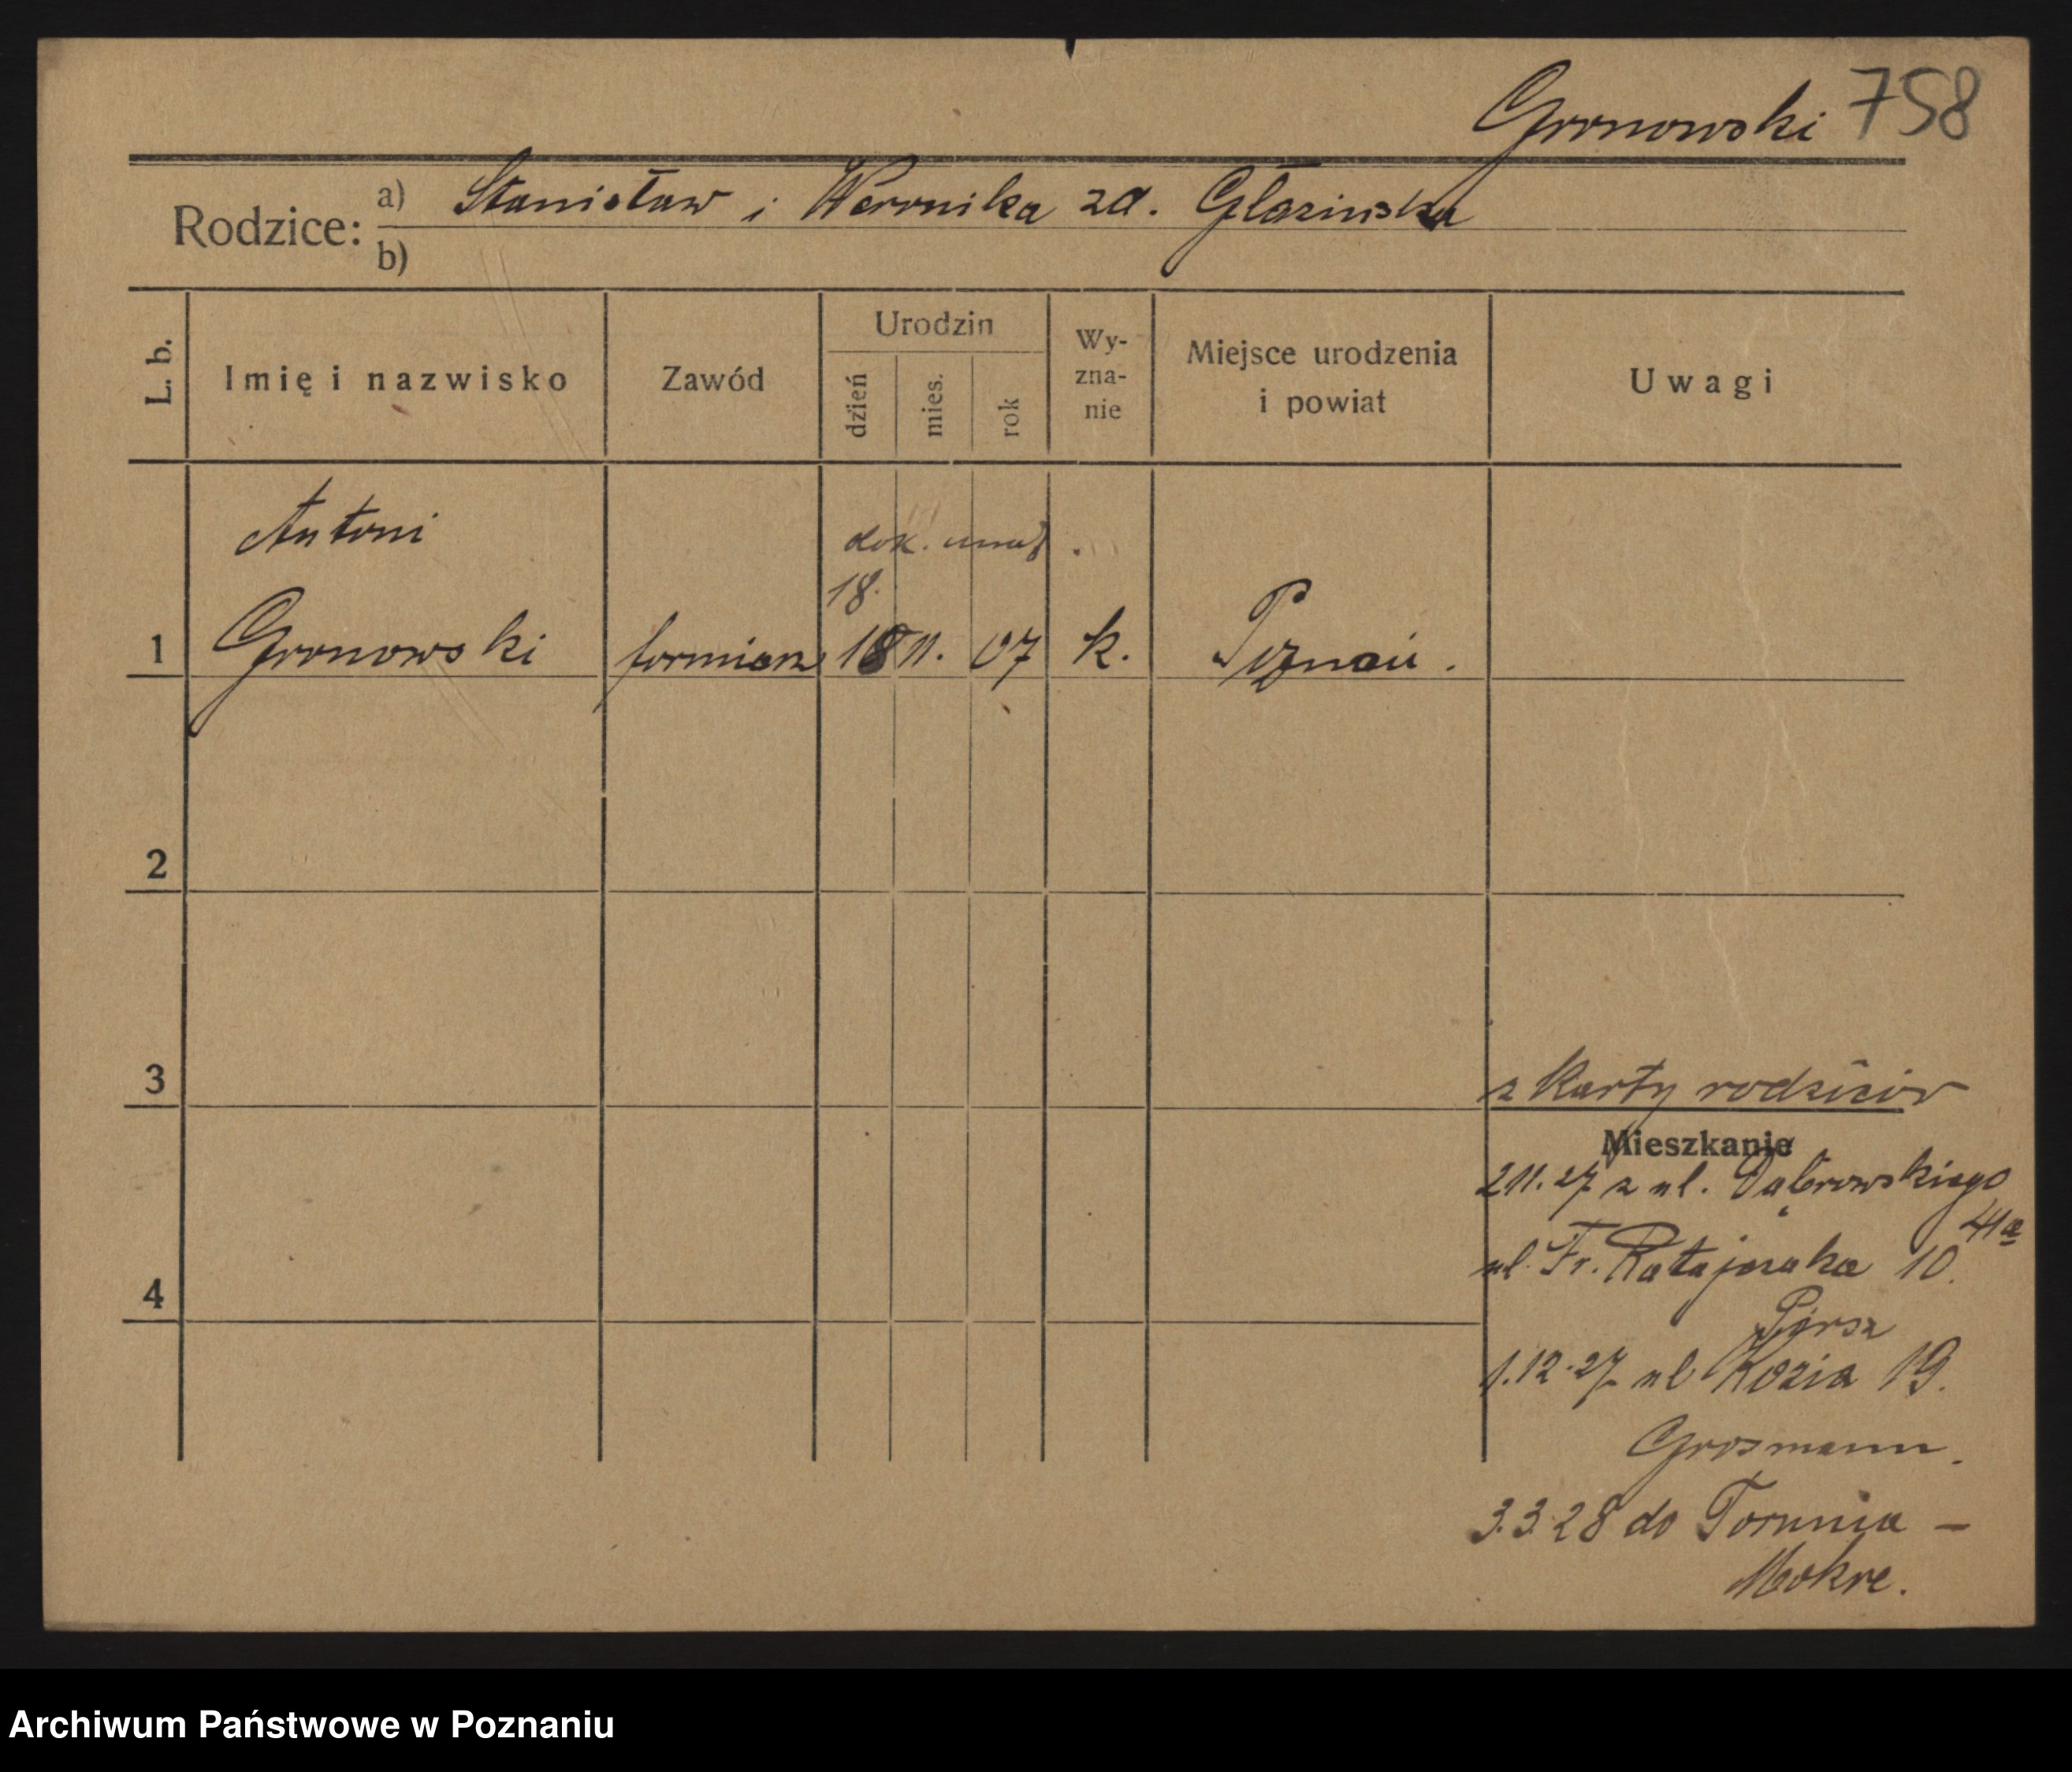 Gronowski 758
Rodzice:
a) Stanisław i Weronika zd. Głazińska
b)
L. b.
Imię i nazwisko
Zawód
Urodzin
dzień
mies.
rok
Wy-
zna-
nie
Miejsce urodzenia
i powiat
Uwagi
Antoni
dok.
18.
1 Gronowski formierz 18 11. 07 k. Poznań.
2
3
z karty rodziców
Mieszkanie
2 11. 27 z ul. Dąbrowskiego
41a
ul. Fr. Ratajczaka 10.
4
1.12.27 ul Kozia 19.
Grosmann.
3.3.28 do Torunia -
Mokre.
Archiwum Państwowe w Poznaniu